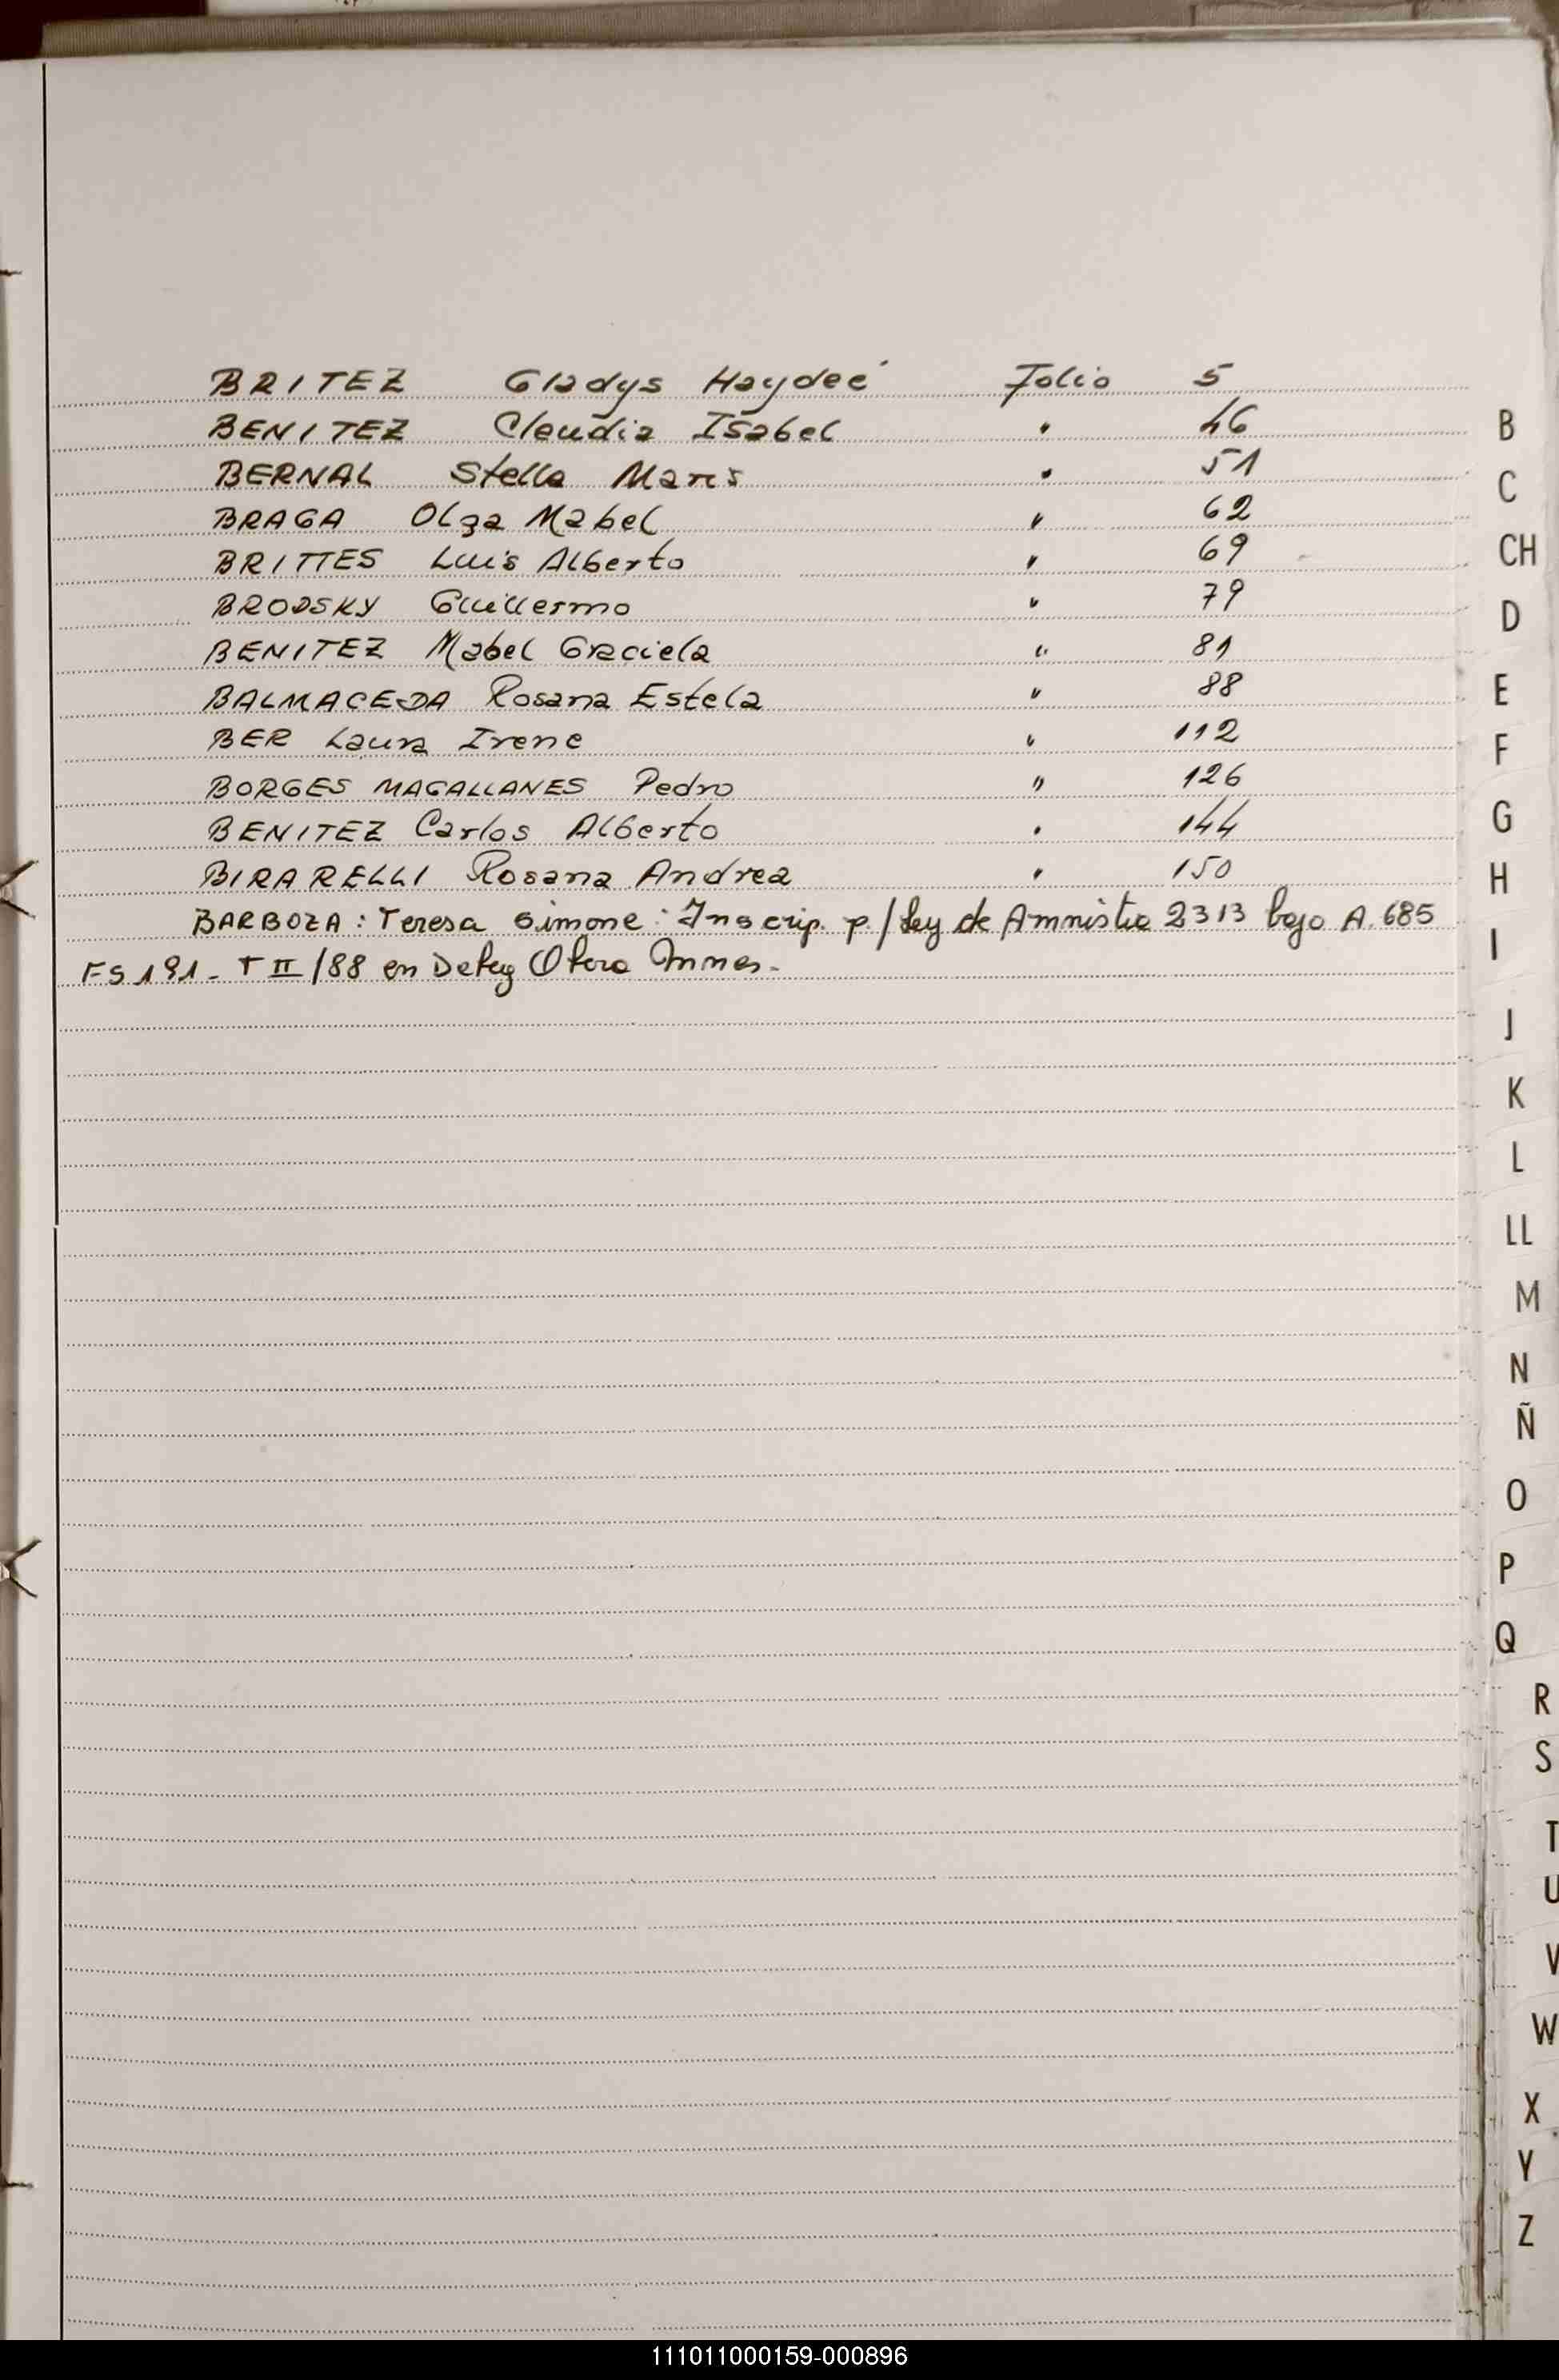 BRITEZ Gladys Haydeé Folio 5
BENITEZ Claudia Isabel " 46
BERNAL Stella Maris " 51
BRAGA Olga Mabel " 62
BRITTES Luis Alberto " 69
BRODSKY Guillermo " 79
BENITEZ Mabel Graciela " 81
BALMACEDA Rosana Estela " 88
BER Laura Irene " 112
BORGES MAGALLANES Pedro " 126
BENITEZ Carlos Alberto " 144
BIRARELLI Rosana Andrea " 150
BARBOZA: Teresa Simone: Inscrip. p./Ley de Amnistia 2313 bajo A. 685
FS 191- T II/88 en Deleg Obera Mnes.-
B
C
CH
D
E
F
G
H
I
J
K
L
LL
M
N
Ñ
O
P
Q
R
S
T
U
V
W
X
Y
Z
111011000159-000896